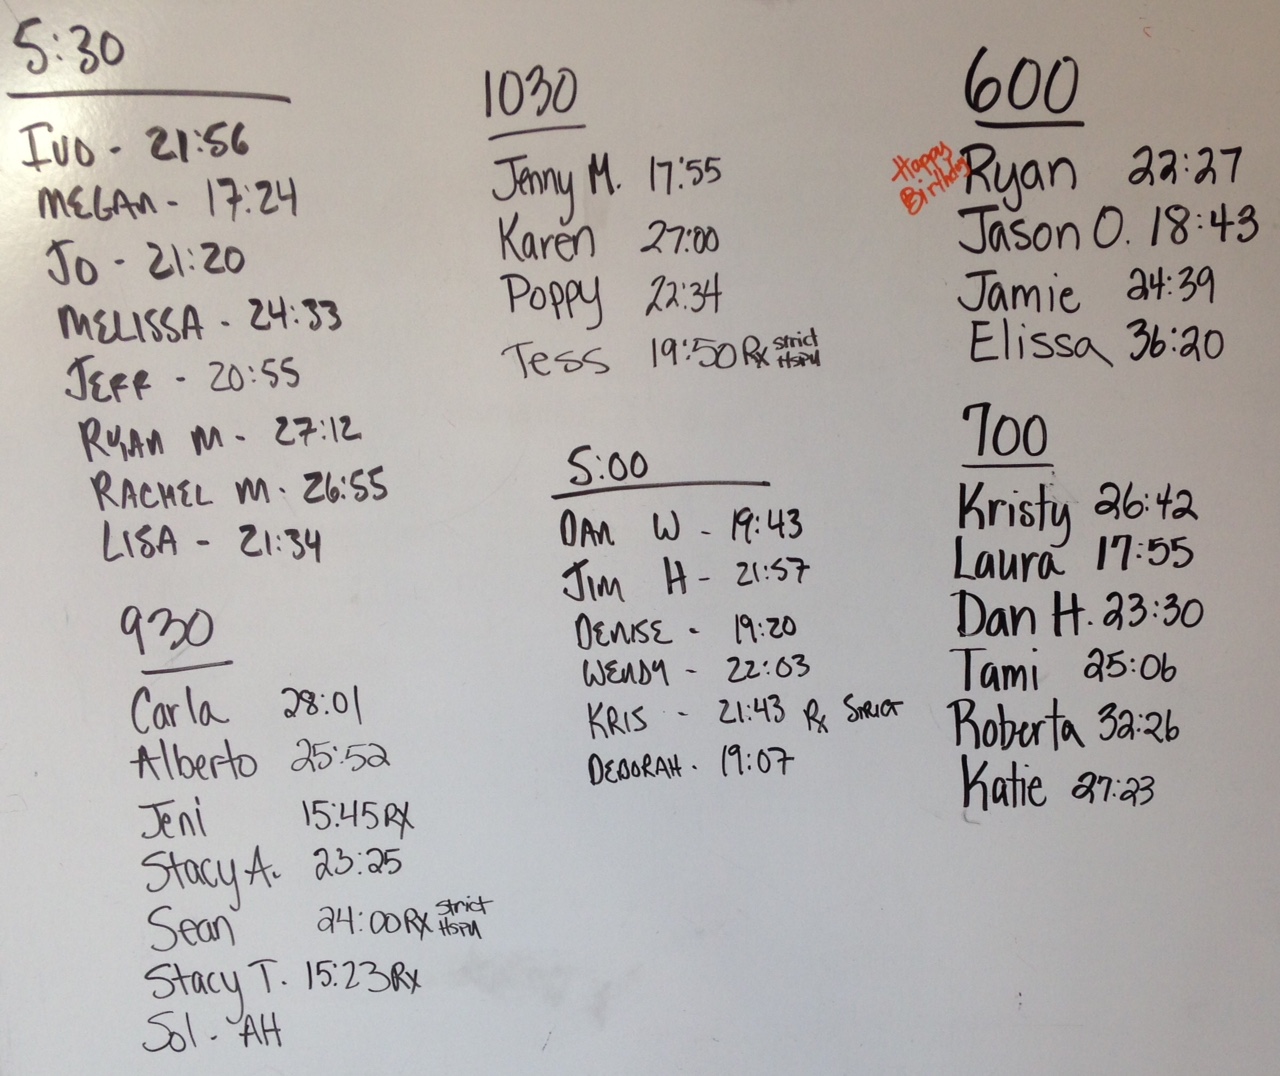 5:30
IVO - 21:56
MEGAN - 17:24
JO - 21:20
MELISSA - 24:33
JEFF - 20:55
RYAN M - 27:12
RACHEL M - 26:55
LISA - 21:34
930
Carla 28:01
Alberto 25:52
Jeni 15:45 Rx
Stacy A. 23:25
Sean 24:00 Rx strict HSPU
Stacy T. 15:23 Rx
Sol - AH
1030
Jenny M. 17:55
Karen 27:00
Poppy 22:34
Tess 19:50 Rx strict HSPU
5:00
DAN W - 19:43
JIM H - 21:57
DENISE - 19:20
WENDY - 22:03
KRIS - 21:43 Rx STRICT
DEBORAH - 19:07
600
Happy
Birthday
Ryan 22:27
Jason O. 18:43
Jamie 24:39
Elissa 36:20
700
Kristy 26:42
Laura 17:55
Dan H. 23:30
Tami 25:06
Roberta 32:26
Katie 27:23